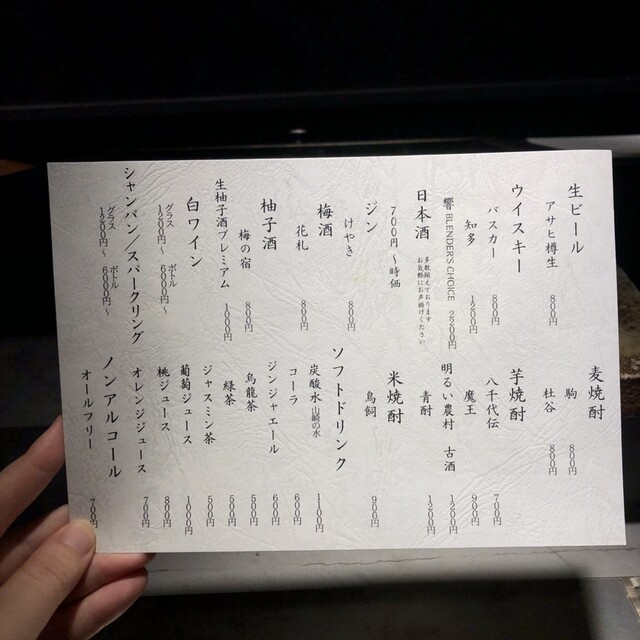 生ビール
アサヒ樽生 800円
ウイスキー
バスカー 800円
知多 1200円
響 BLENDER'S CHOICE 2200円
日本酒
700円〜時価
多数揃えております
お気軽にお声掛けください。
ジン
けやき 800円
梅酒
花札 800円
柚子酒
梅の宿 800円
生柚子酒プレミアム 1000円
白ワイン
グラス 1200円〜
ボトル 6000円〜
シャンパン/スパークリング
グラス 1200円〜
ボトル 6000円〜
麦焼酎
駒 800円
杜谷 800円
芋焼酎
八千代伝 700円
魔王 900円
明るい農村 古酒 1200円
青酎 1200円
米焼酎
鳥飼 900円
ソフトドリンク
炭酸水 山崎の水 1100円
コーラ 600円
ジンジャエール 600円
烏龍茶 500円
緑茶 500円
ジャスミン茶 500円
葡萄ジュース 1000円
桃ジュース 800円
オレンジジュース 700円
ノンアルコール
オールフリー 70